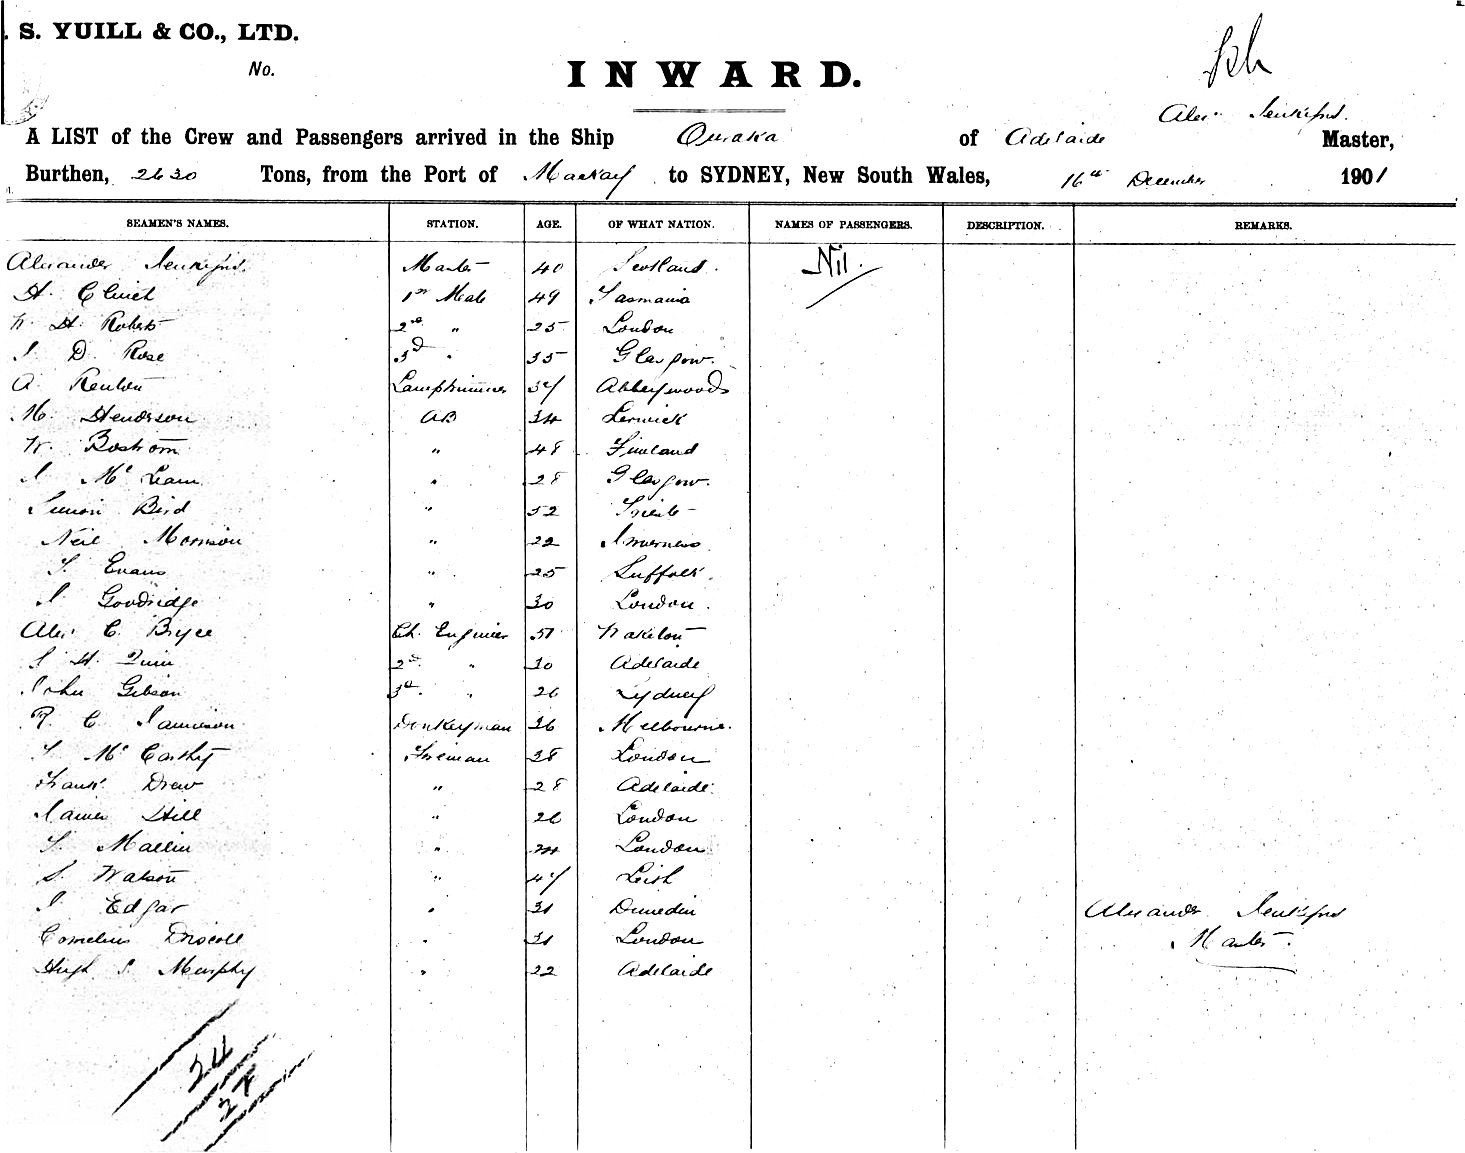 . S. YUILL & CO., LTD.
No.
INWARD.
A LIST of the Crew and Passengers arrived in the Ship Ouraka of Adelaide Alexr Master,
Burthen, 2630 Tons, from the Port of Mackay to SYDNEY, New South Wales, 16th December 1901
SEAMEN'S NAMES. STATION. AGE. OF WHAT NATION. NAMES OF PASSENGERS. DESCRIPTION. REMARKS.
Alexander Master 40 Scotland. Nil.
H. Clinch 1st Mate 49 Tasmania
W. H. Roberts 2nd " 25 London
J. D. Rose 3d " 35 Glasgow.
A. Renton Lamptrimmer 37 Abbeywoods
M. Henderson AB 34 Lerwick
W. Bostrom " 48 Finland
J. Mc Lean " 28 Glasgow.
Simon Bird " 52 Trieste
Neil Morrison " 22 Inverness
T. Evans " 25 Suffolk.
J. Goodridge " 30 London.
Alexr C. Bryce Ch. Engineer 51
J H. Quin 2nd " 30 Adelaide
John Gibson 3d. " 26 Sydney
R. C. Jamieson Donkeyman 36 Melbourne.
T. Mc Carthy Fireman 38 London
Frank Drew " 28 Adelaide.
James Hill " 26 London
T. Mallin " 24 London
S. Watson " 47 Leith
J. Edgar " 31 Dunedin Alexander
Cornelius Driscoll " 31 London Master.
Hugh J. Murphy " 22 Adelaide
24